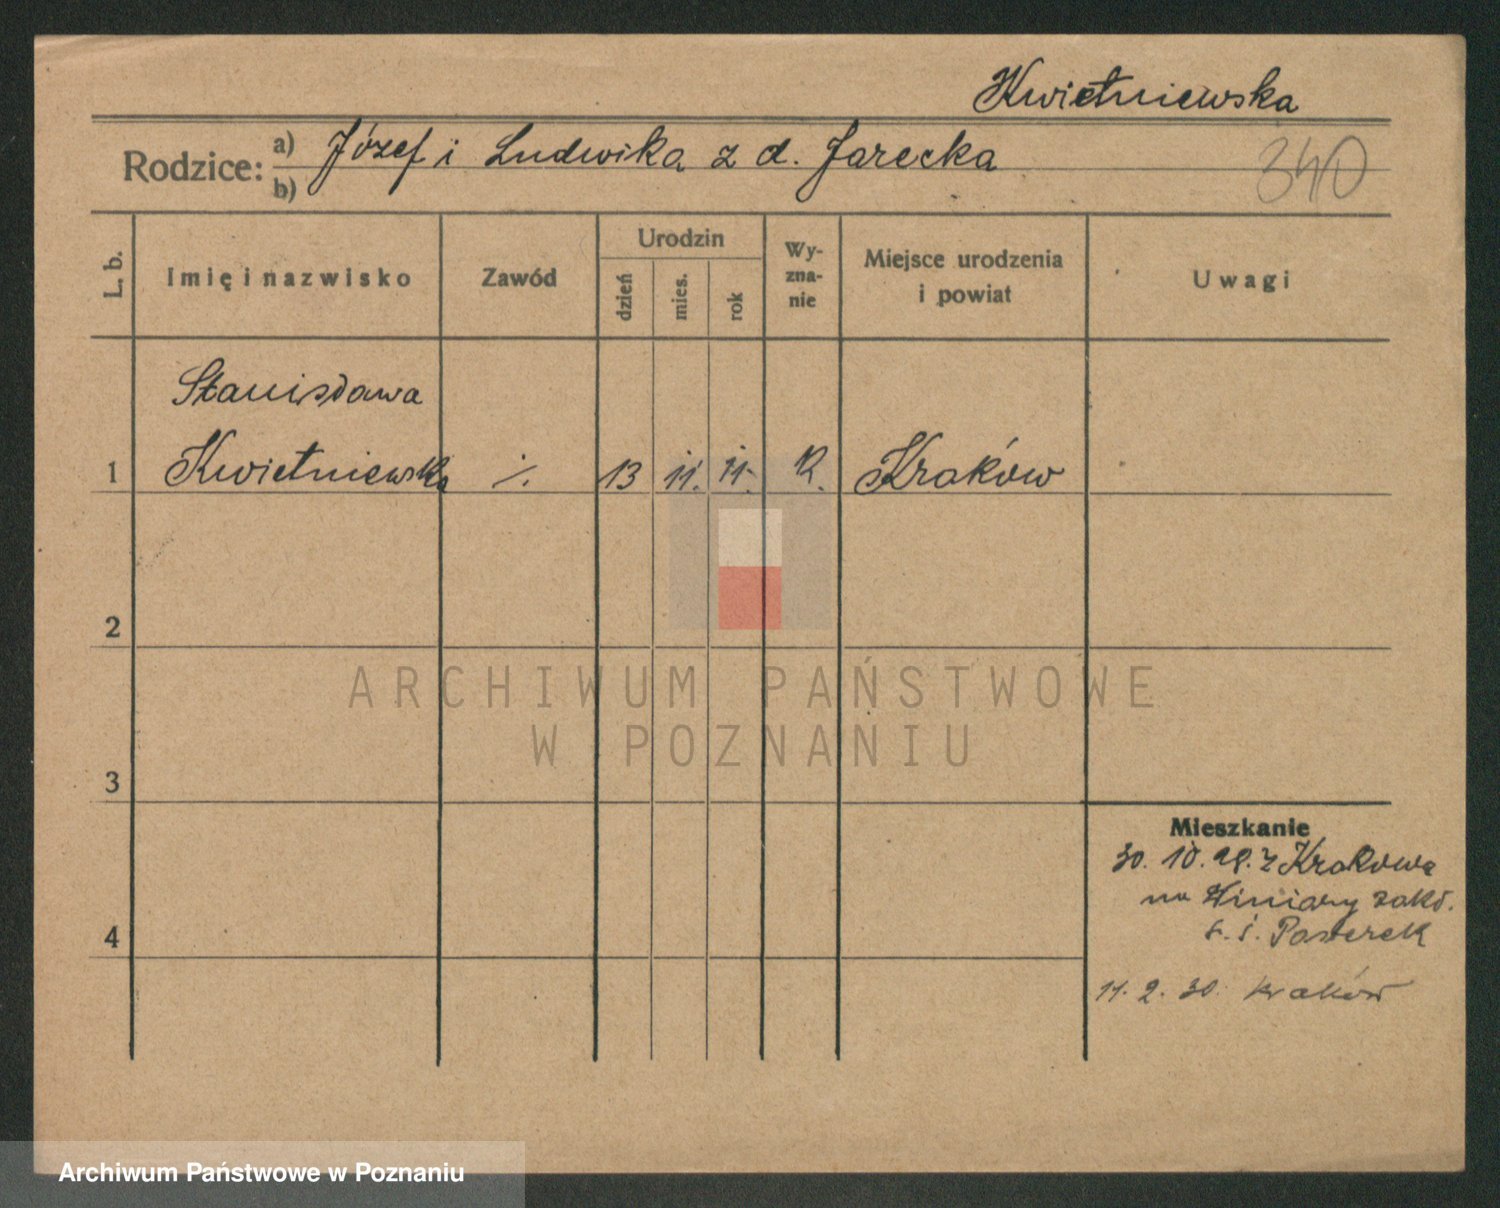 Kwietniewska
Rodzice: a) Józef i Ludwika z d. Jarecka
b)
340
L. b.
Imię i nazwisko
Zawód
Urodzin
dzień
mies.
rok
Wy-
zna-
nie
Miejsce urodzenia
i powiat
Uwagi
Stanisława
1 Kwietniewska ·/. 13 11. 11. R. Kraków
2
3
4
ARCHIWUM PAŃSTWOWE
W POZNANIU
Mieszkanie
30. 10. 29. z Krakowa
na Winiary zakł.
11. 2. 30. Kraków
Archiwum Państwowe w Poznaniu